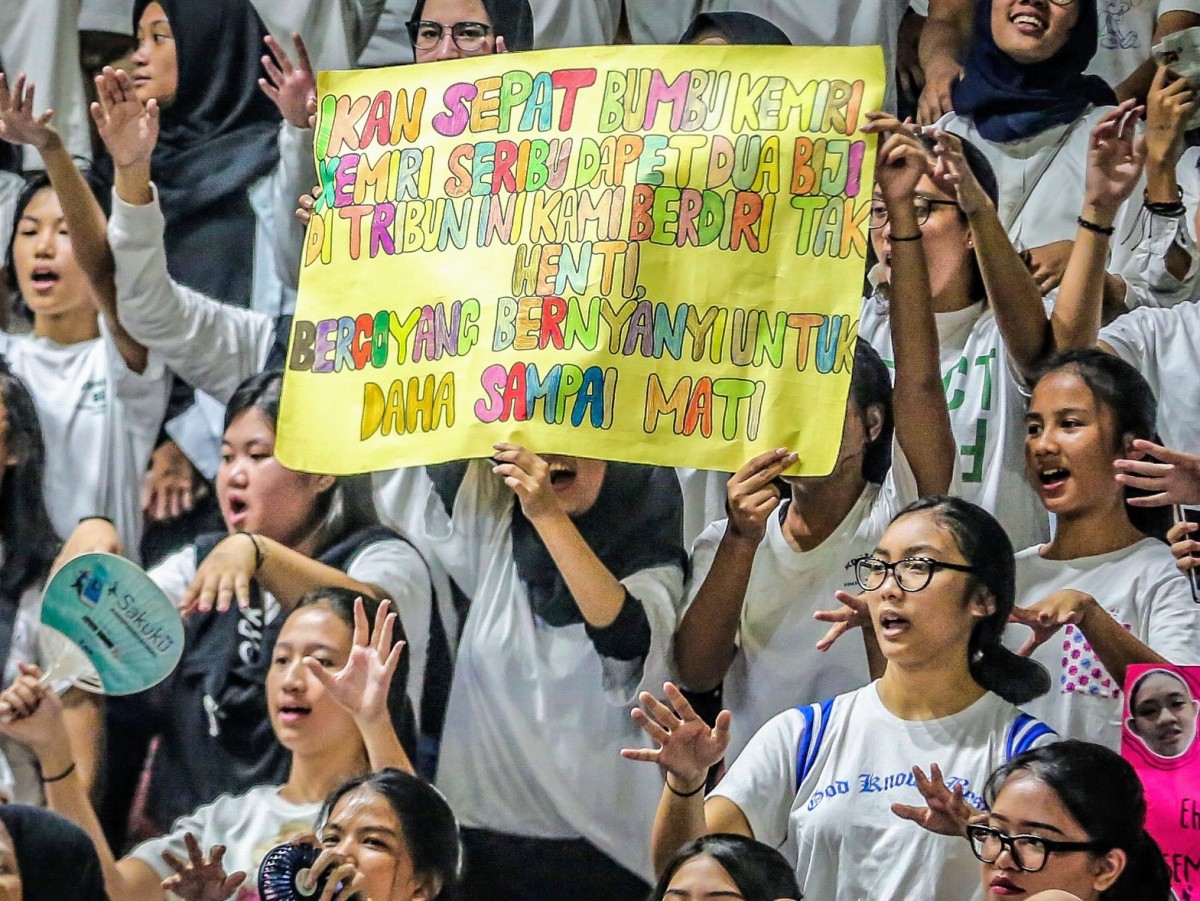 IKAN SEPAT BUMBU KEMIRI
KEMIRI SERIBU DAPET DUA BIJI
DI TRIBUN INI KAMI BERDIRI TAK
HENTI,
BERGOYANG BERNYANYI UNTUK
DAHA SAMPAI MATI
Sakukū
God Know